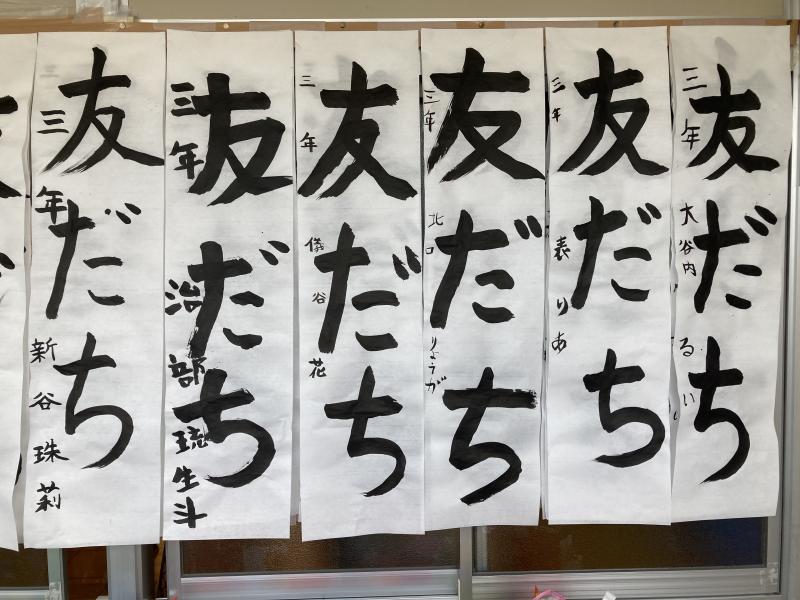 友だち
三年
大谷内るい
友だち
三年
表りあ
友だち
三年
北口りょうが
友だち
三年
儀谷花
友だち
三年
治部琉生斗
友だち
三年
新谷珠莉